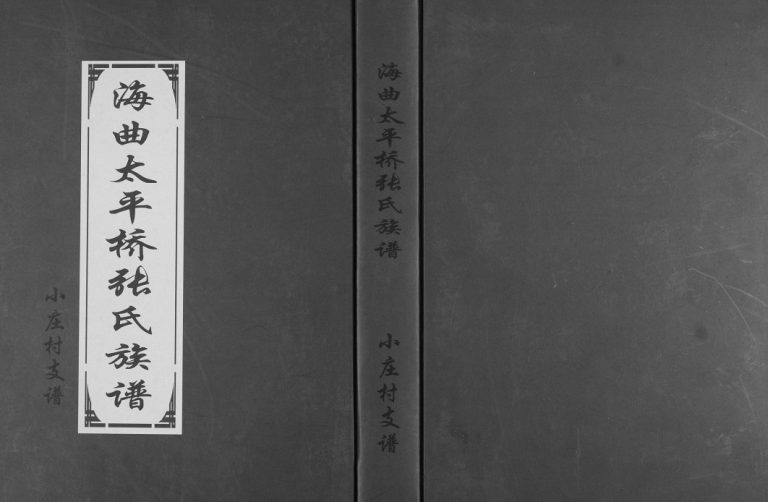 海曲太平桥张氏族谱
小庄村支谱
海曲太平桥张氏族谱
小庄村支谱